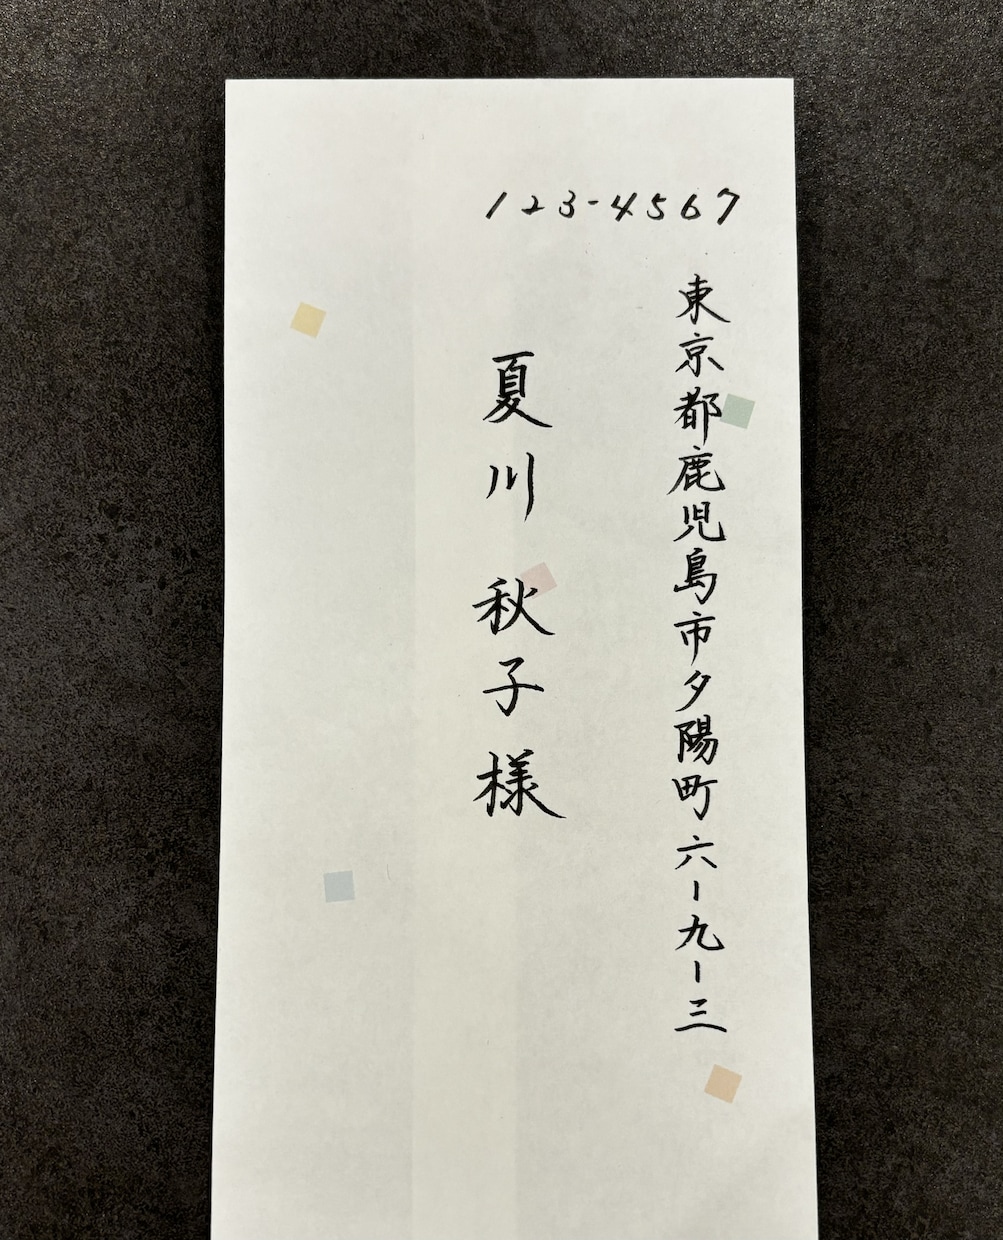 123-4567
東京都鹿児島市夕陽町六-九-三
夏川 秋子様